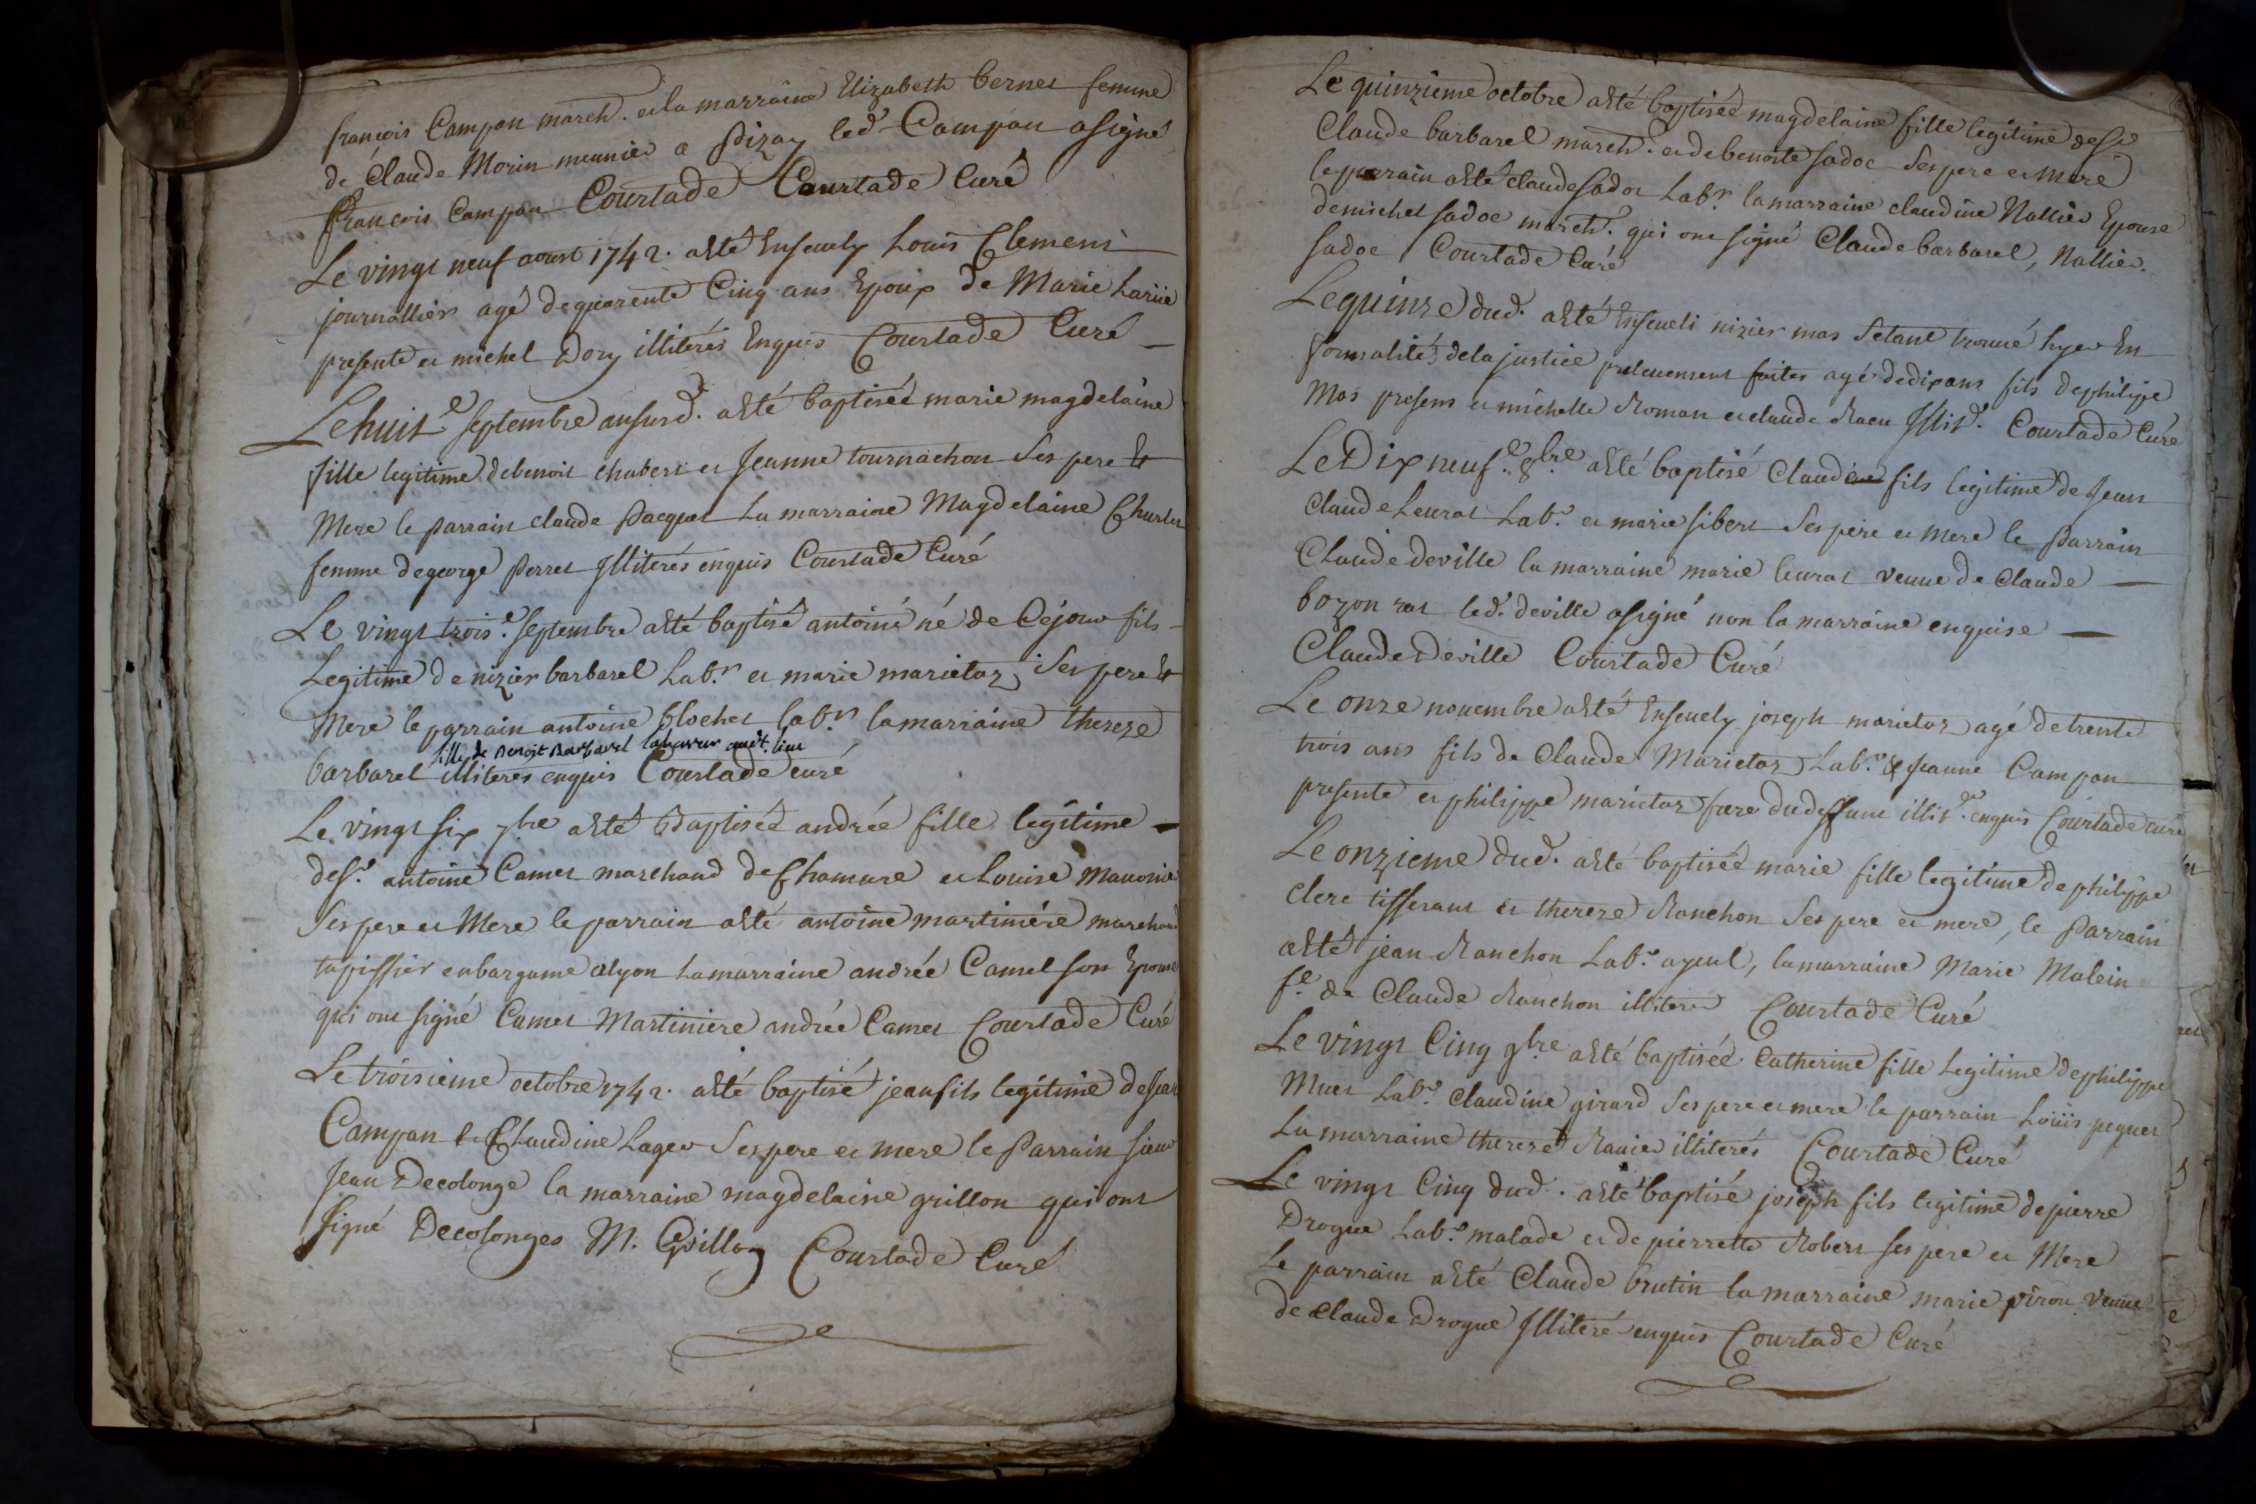 françois Campan march. et la marraine Elizabeth bernet femme
de Claude Morin meunier a Pizay led. Campan a signé
françois Campan Courtade Courtade Curé
Le vingt neuf aoust 1742. a eté Ensevely Louis Clement
journallier agé de quarente Cinq ans Epoux de Marie Lariie
presente et michel Dory illiterés Enquis Courtade Curé
Le huit.e septembre ansusd. a eté baptiseé marie magdelaine
fille legitime de benoit chabert et Jeanne tournachon ses pere Et
Mere le parrain claude Pacquet La marraine Magdelaine
femme de george Perret Illiterés enquis Courtade Curé
Le vingt trois.e septembre a eté baptisé antoine né de Ce jour fils
Legitime de nizier barbarel Lab.r et marie marietoz ses pere Et
Mere le parrain antoine blochet lab.r la marraine thereze
fille de Benoit Barbarel laboureur audt. lieu
barbarel illiteres enquis Courtade curé
Le vingt six 7bre a eté Baptiseé andrée fille legitime
de s.r antoine Camet marchand de Chamure et Louise
ses pere et Mere le parrain a eté antoine martiniére marchand
tapissier en bargame a lyon La marraine andrée Camet son Epouse
qui ont signé Camet Martiniere andrée Camet Courtade Curé
Le troisieme octobre 1742. a eté baptisé jean fils legitime de jean
Campan et Claudine Lager ses pere et mere le Parrain sieur
Jean Decolonge la marraine magdelaine grillon qui ont
signé Decolonges M. Grillon Courtade Curé
Le quinzieme octobre a eté baptiseé magdelaine fille legitime de sr
Claude barbarel march. et de benoite sadoc ses pere et mere
le parrain a eté claude sadoc Lab.r la marraine claudine Nallier Epouse
de michel sadoc march. qui ont signé Claude barbarel, Nallier.
sadoc Courtade Curé
Le quinze dud. a eté Enseveli nizier mas s'etant trouvé hyer En
formalités de la justice prelevement faites agé de dix ans fils de philipe
Mas presens et michelle Roman et claude Illit. Courtade Curé
Le Dix neuf.e 8.bre a eté baptisé Claude fils legitime de Jean
Claude Leurat Lab.r et marie sibert ses pere et Mere le Parrain
Claude deville la marraine marie leurat veuve de Claude
bozon led. deville a signé non la marraine enquise
Claude Deville Courtade Curé
Le onze novembre a eté Ensevely joseph marietoz agé de trente
trois ans fils de Claude Marietoz Lab.r & jeanne Campan
presente et philippe marietoz frere du deffunt illit. enquis Courtade curé
Le onzieme dud. a eté baptiseé marie fille legitime de philippe
clere tisserant et thereze Ranchon ses pere et mere, le Parrain
a eté jean Ranchon Lab.r ayeul, la marraine Marie Malein
f.e de Claude Ranchon illiteré Courtade Curé
Le vingt Cinq 9bre a eté baptiseé Catherine fille Legitime de philippe
Muet Lab.r Claudine girard ses pere et mere le parrain Loüis peguet
La marraine thereze Ravier illiterés Courtade Curé
Le vingt Cinq dud. a eté baptisé joseph fils legitime de pierre
Drogue Lab.r malade et de pierrette Robert ses pere et Mere
Le parrain a eté Claude brutin la marraine marie piron veuve
de Claude Drogue Illiteré enquis Courtade Curé